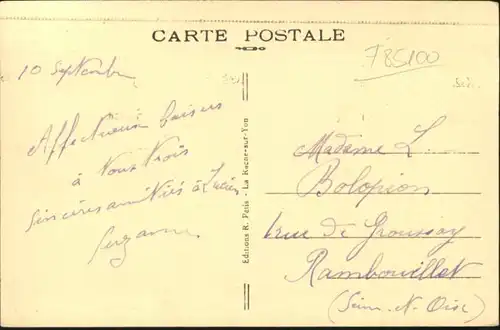 CARTE POSTALE
F85100
10 Septembre
Affectueux baisers
à vous trois
Sincères amitiés à Lucien
Suzanne
Editions R. Petis - La Roche-sur-Yon
Madame L.
Bolopion
rue de Groussay
Rambouillet
(Seine-N-Oise)